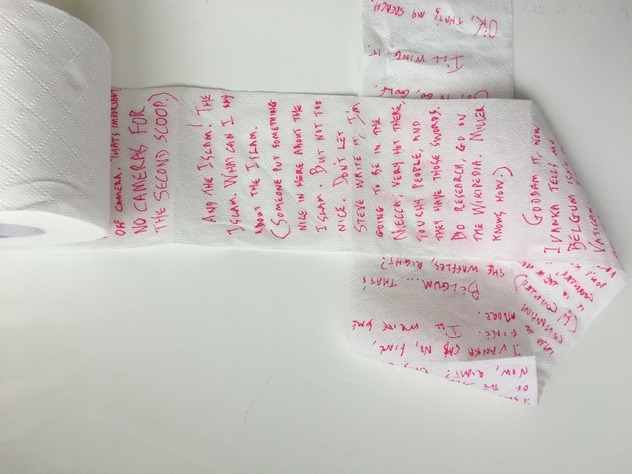 OFF CAMERA. THAT'S IMPORTANT.
NO CAMERAS FOR
THE SECOND SCOOP.)
AND THE ISLAM! THE
ISLAM. WHAT CAN I SAY
ABOUT THE ISLAM.
(SOMEONE PUT SOMETHING
NICE IN HERE ABOUT THE
ISLAM. BUT NOT TOO
NICE. DON'T LET
STEVE WRITE IT, I'M
GOING TO BE IN THE
MECCA, VERY HOT THERE,
TOUCHY PEOPLE, AND
THEY HAVE THOSE SWORDS.
DO RESEARCH, GO ON
THE WIKIPEDIA. MILLER
KNOWS HOW.)
GODDAM IT, NOW
IVANKA TELLS ME
BELGUM
VATICAN
THE WAFFLES, RIGHT?
BELGUM... THAT'S
MORE.
FINE. I'LL WRITE SOME
IVANKA SAYS NO, FINE,
NOW, RIGHT?
I'LL WING IT.
OK, THAT'S MY SPEECH,